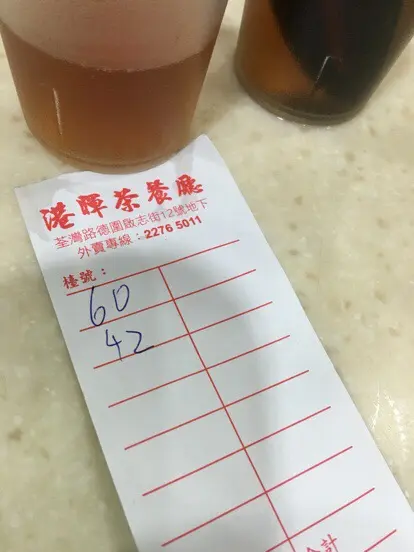 港暉茶餐廳
荃灣路德圍啟志街12號地下
外賣專線：2276 5011
檯號：
60
42
合計